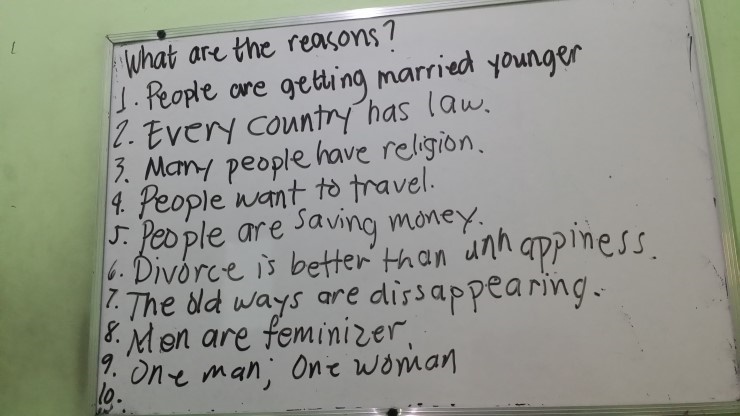 What are the reasons?
1. People are getting married younger
2. Every country has law.
3. Many people have religion.
4. People want to travel.
5. People are saving money.
6. Divorce is better than unhappiness.
7. The old ways are dissappearing.
8. Men are feminizer.
9. One man; One woman
10.